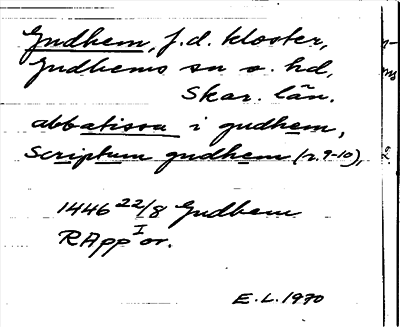 Gudhem, f.d. kloster,
Gudhems sn o. hd,
Skar. län.
abbatissa i gudhem,
Scriptum gudhem (r. 9-10),
1446 22/8 Gudhem
RApp I or.
E.L. 1970